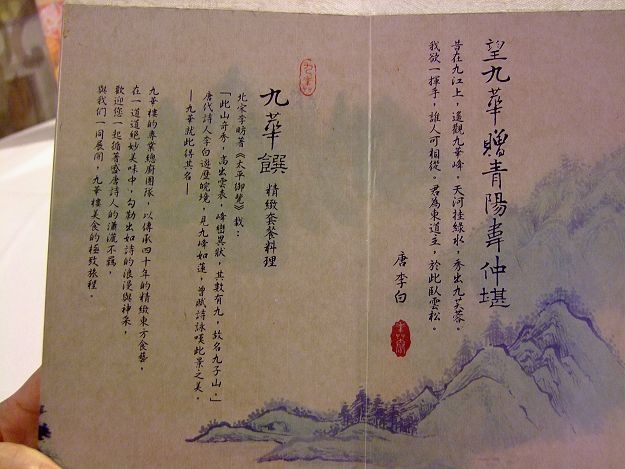 望九華贈青陽韋仲堪
昔在九江上，遙觀九華峰。天河挂綠水，秀出九芙蓉。
我欲一揮手，誰人可相從。君為東道主，於此臥雲松。
唐 李白
九華饌 精緻套餐料理
北宋李昉著《太平御覽》載：
「此山奇秀，高出雲表，峰巒異狀，其數有九，故名九子山。」
唐代詩人李白遊歷皖境，見九峰如蓮，曾賦詩詠嘆此景之美。
—九華就此得其名—
九華樓的專業總廚團隊，以傳承四十年的精緻東方食藝，
在一道道絕妙美味中，勾勒出如詩的浪漫與神采，
歡迎您一起循著盛唐詩人的瀟灑不羈，
與我們一同展開，九華樓美食的極致旅程。